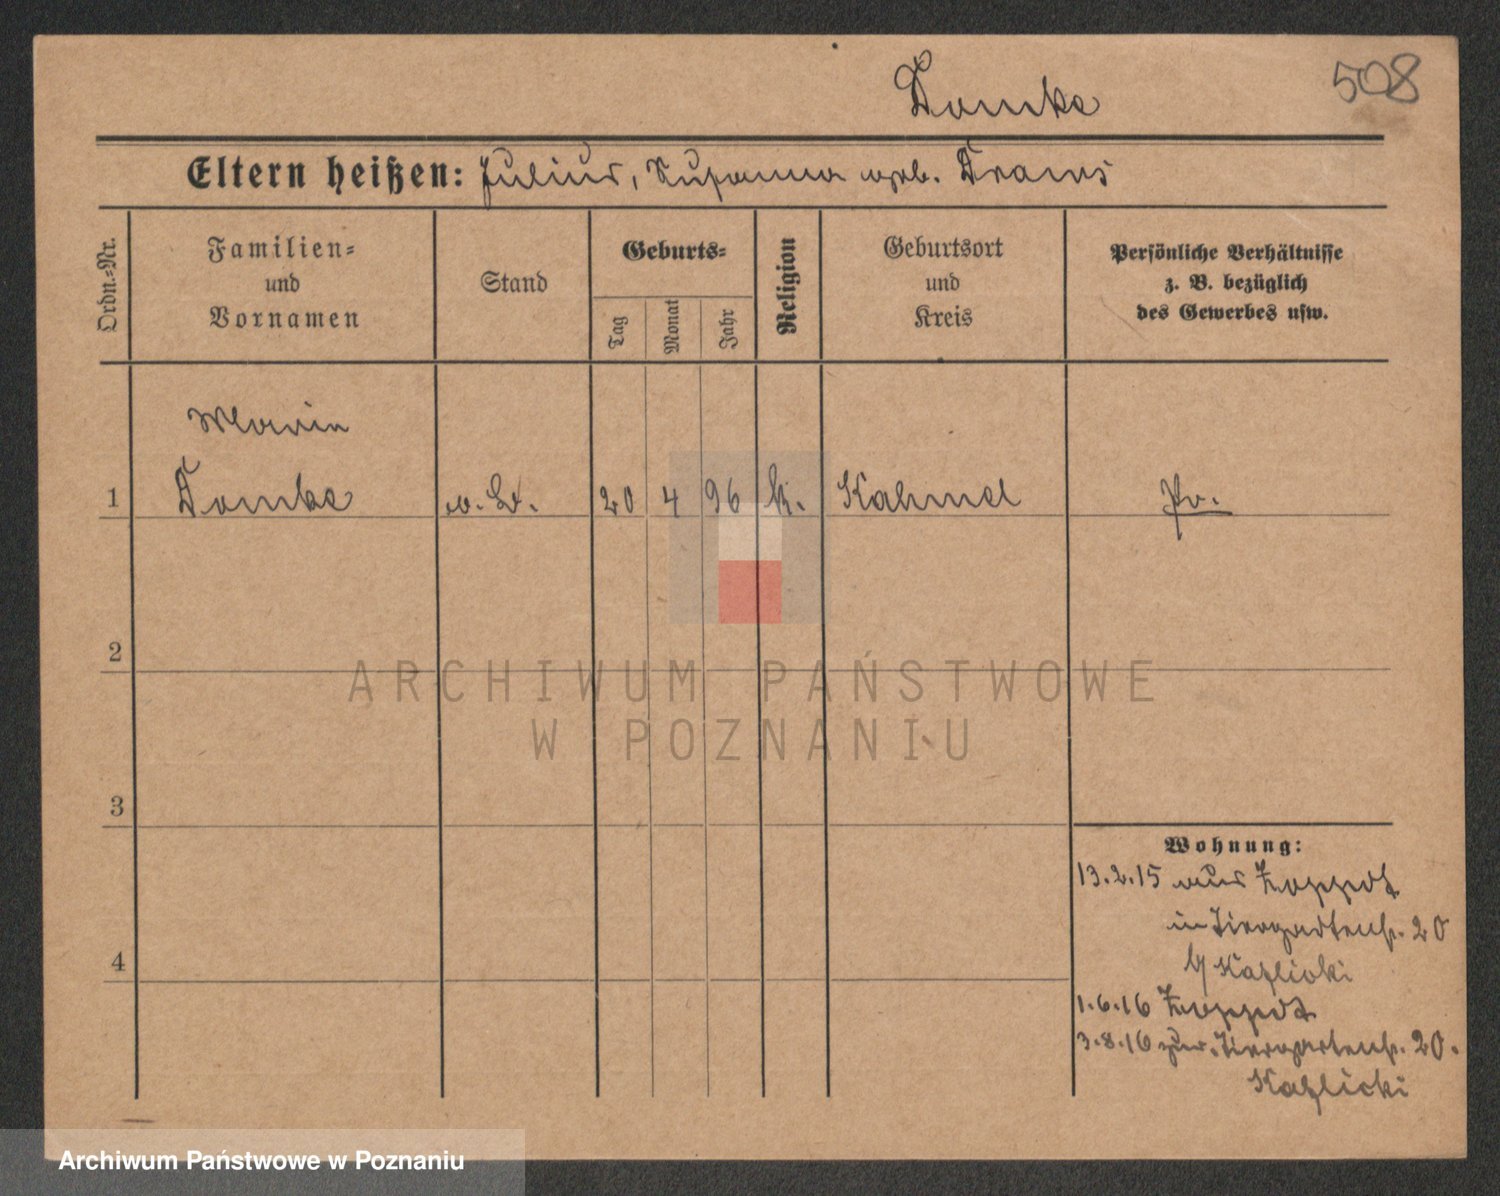 508
Domka
Eltern heißen: Julius, Susanna geb. Draws
Ordn.-Nr.
Familien- und Vornamen
Stand
Geburts-
Tag
Monat
Jahr
Religion
Geburtsort und Kreis
Persönliche Verhältnisse z. B. bezüglich des Gewerbes usw.
Maria
1 Domka 20 4 96 k. Kahmel Pr.
2
3
4
Wohnung:
13.2.15 aus Zoppot
in Tiergartenstr. 20
b/ Kaslicki
1.6.16 Zoppot
3.8.16 zur. Tiergartenstr. 20.
Kaslicki
ARCHIWUM PAŃSTWOWE
W POZNANIU
Archiwum Państwowe w Poznaniu